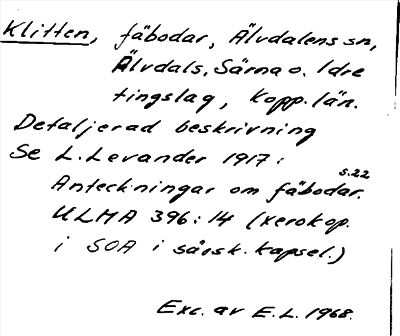 Klitten, fäbodar, Älvdalens sn,
Älvdals, Särna o. Idre
tingslag, Kopp. län.
Detaljerad beskrivning
Se L. Levander 1917:
s. 22
Anteckningar om fäbodar.
ULMA 396:14 (xerokop.
i SOA i särsk. kapsel.)
Exc. av E.L. 1968.